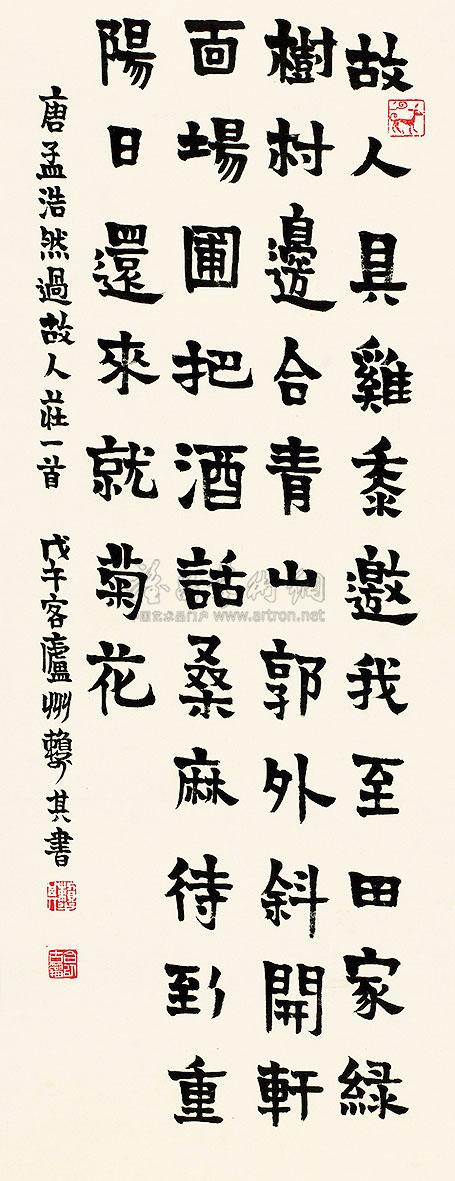 故人具雞黍邀我至田家綠
樹村邊合青山郭外斜開軒
面場圃把酒話桑麻待到重
陽日還來就菊花
唐孟浩然過故人莊一首 戊午客廬州賴少其書
中国艺术品门户 www.artron.net